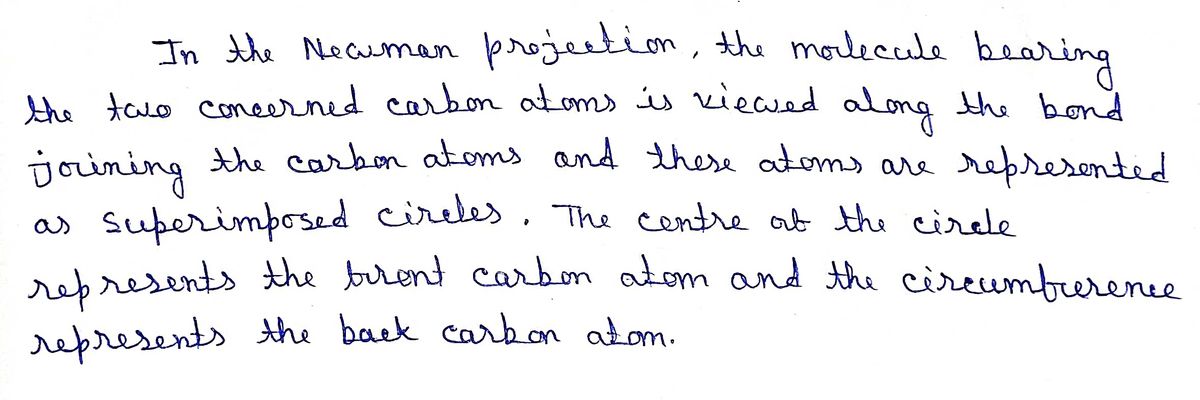 In the Newman projection, the molecule bearing
the two concerned carbon atoms is viewed along the bond
joining the carbon atoms and these atoms are represented
as superimposed circles. The centre of the circle
represents the front carbon atom and the circumference
represents the back carbon atom.